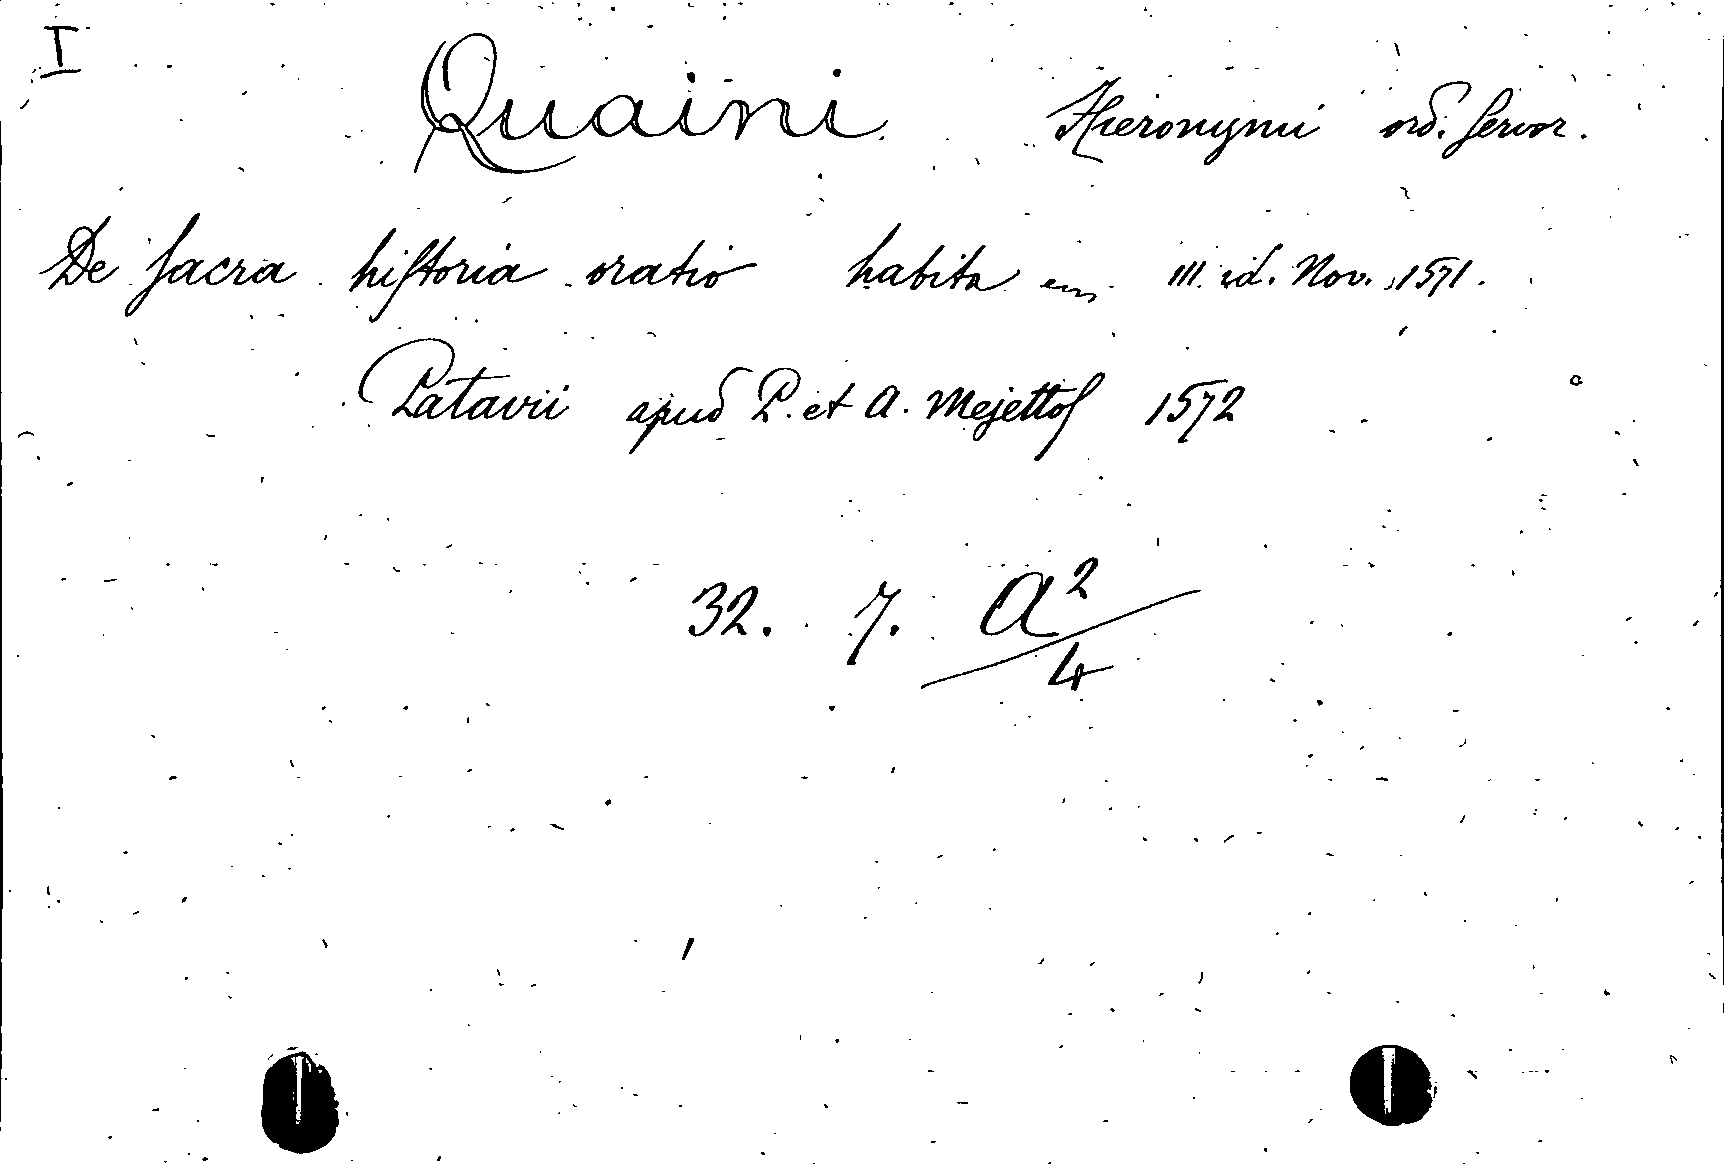 I
Quaini Hieronymi ord. servor.
De sacra historia oratio habita III. id. Nov. 1571.
Patavii apud P. et A. Mejettos 1572
32. 7. A²/4